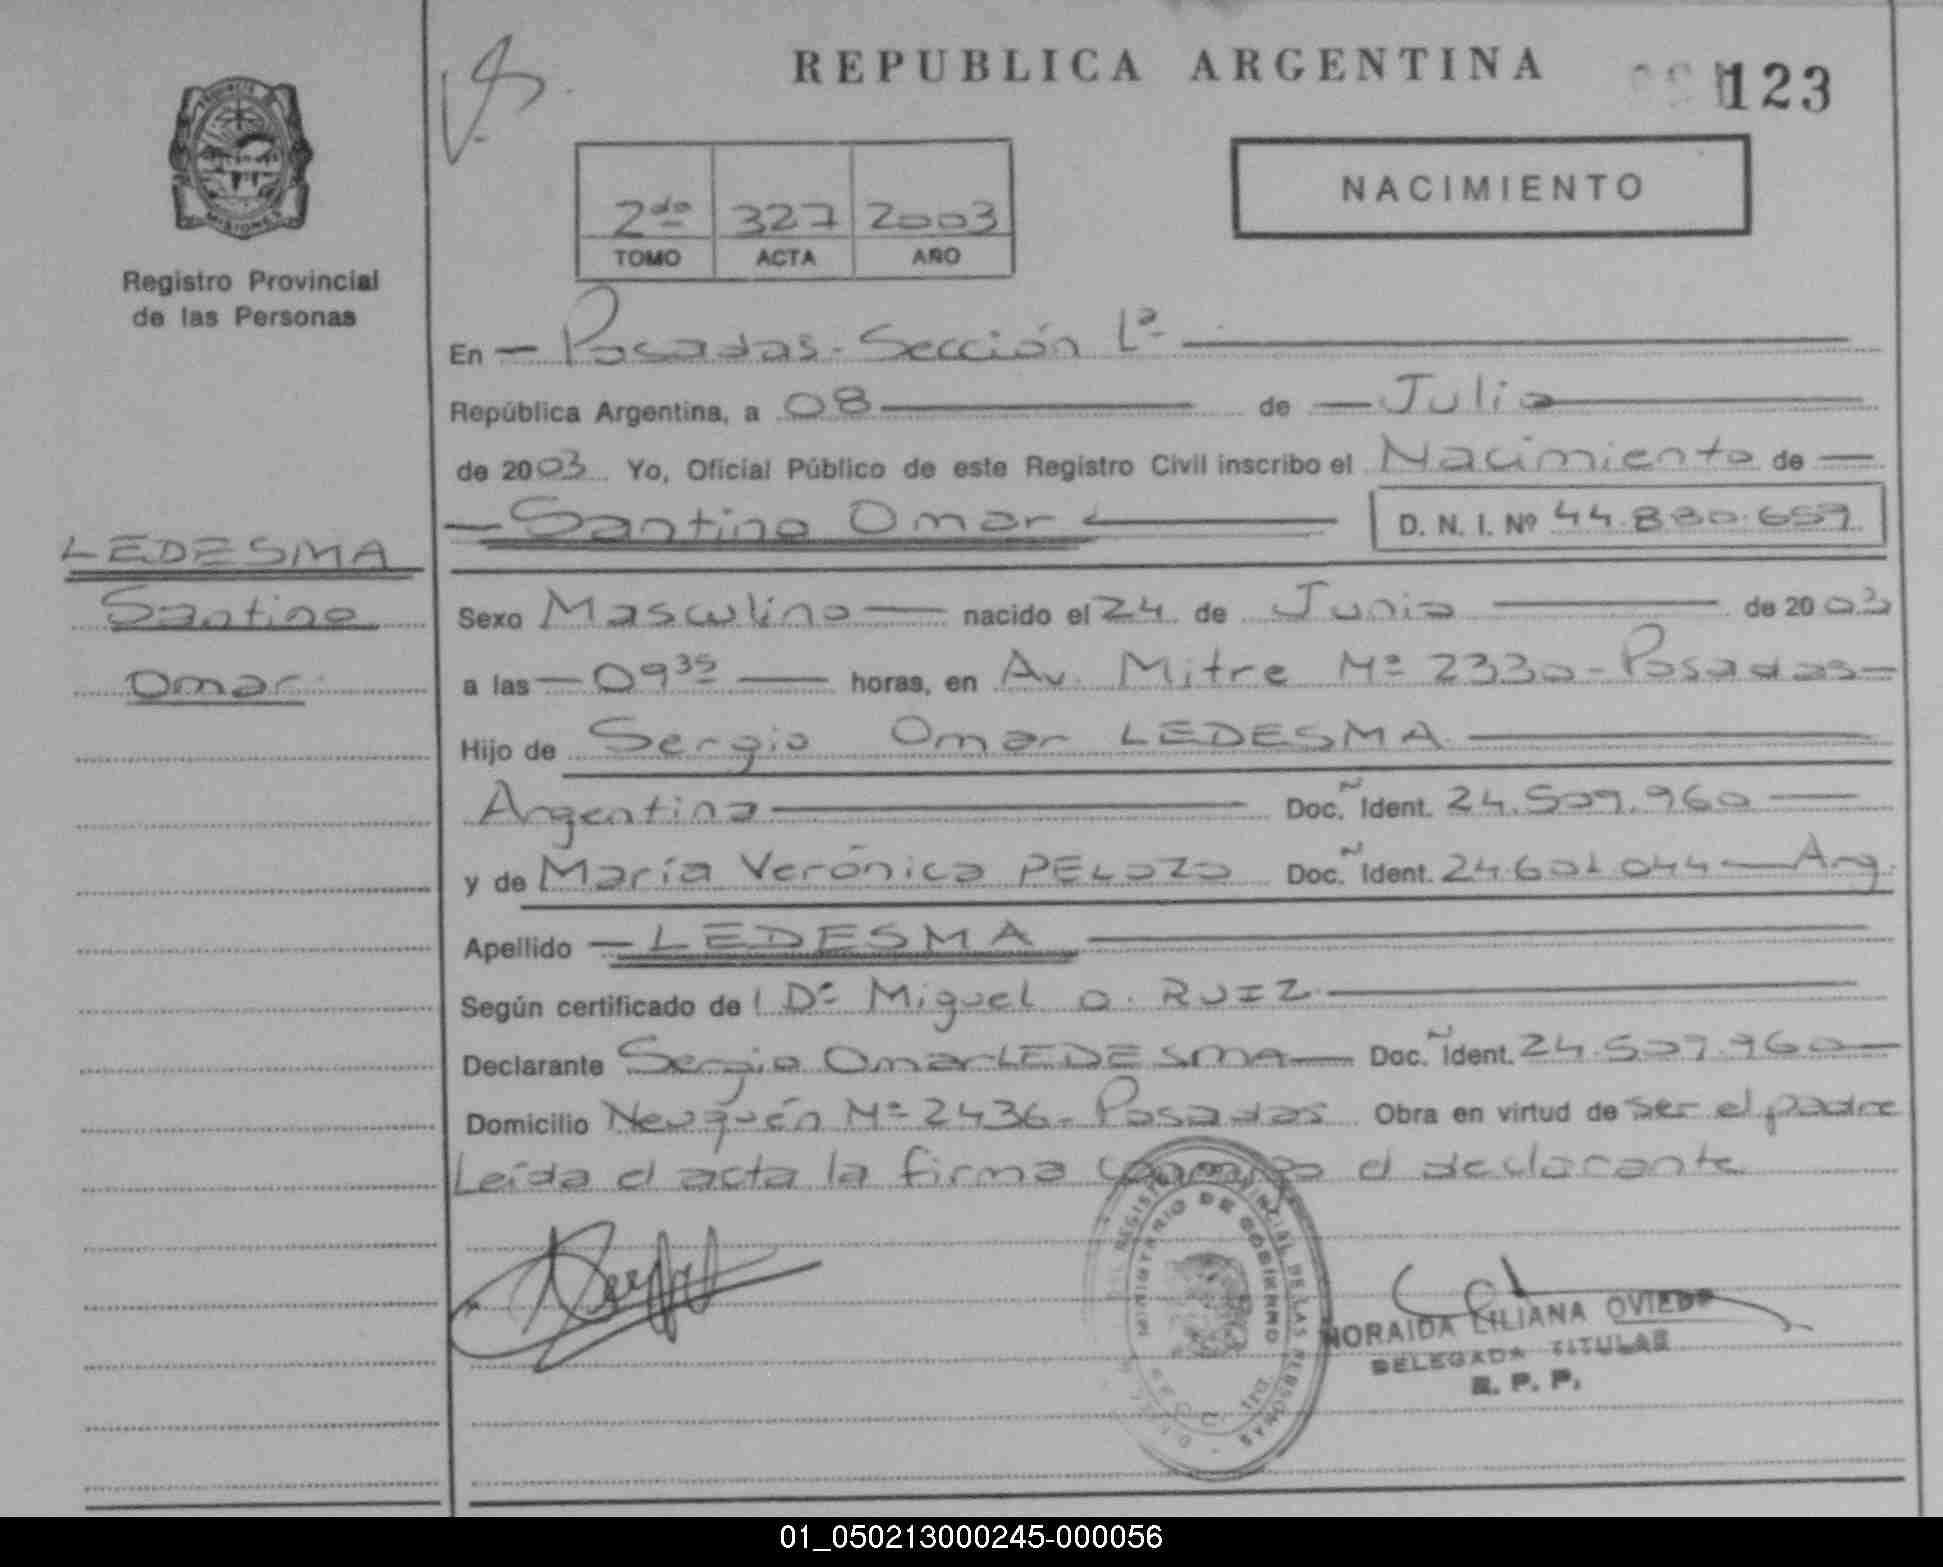 REPUBLICA ARGENTINA
123
NACIMIENTO
2do 327 2003
TOMO ACTA AÑO
PROVINCIA DE MISIONES
Registro Provincial
de las Personas
En Posadas - Sección 1ª
República Argentina, a 08 de Julio
de 2003 Yo, Oficial Público de este Registro Civil inscribo el Nacimiento de
Santino Omar D. N. I. Nº 44.880.659
LEDESMA
Santino
Omar
Sexo Masculino nacido el 24 de Junio de 2003
a las 09 35 horas, en Av. Mitre Nº 2330 - Posadas
Hijo de Sergio Omar LEDESMA
Argentina Doc. Ident. 24.509.960
y de María Verónica PELOZO Doc. Ident. 24.601.044 Arg.
Apellido LEDESMA
Según certificado de Dº Miguel O. RUIZ
Declarante Sergio Omar LEDESMA Doc. Ident. 24.509.960
Domicilio Neuquén Nº 2436 - Posadas Obra en virtud de ser el padre
Leída el acta la firma conmigo el declarante
REGISTRO PROVINCIAL DE LAS PERSONAS
MINISTERIO DE GOBIERNO
NORAIDA LILIANA OVIEDO
DELEGADA TITULAR
R. P. P.
01_050213000245-000056